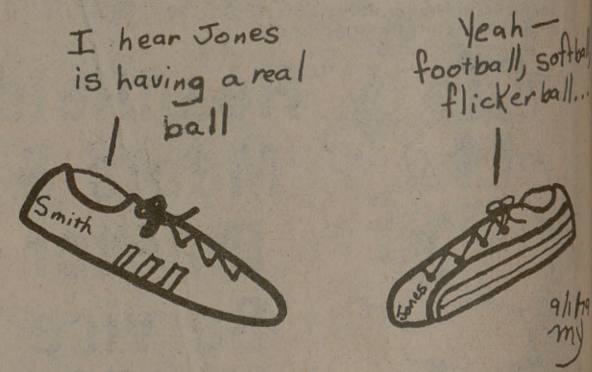 I hear Jones
is having a real
ball
Yeah —
football, softball,
flickerball...
Smith
Jones
9/1/79
my